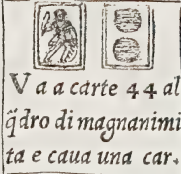 Va a carte 44 al
q̃dro di magnanimi
ta e caua una car.